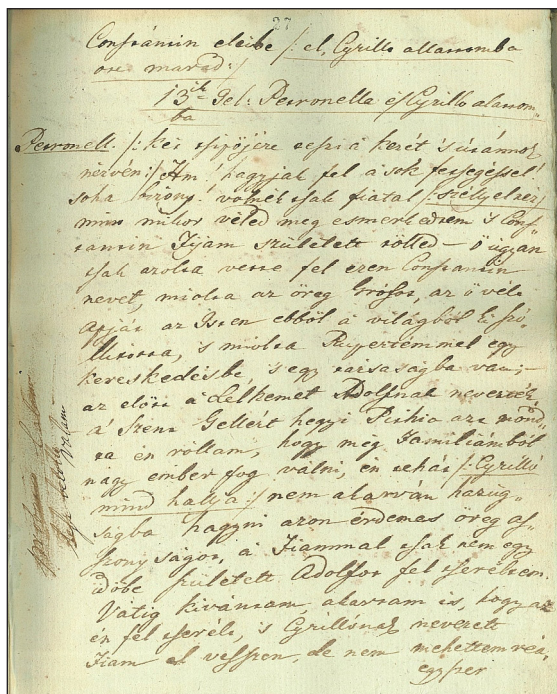 37
Constantin eleibe /: el, Cyrillo allattomba
ott marad :/
13ik Jel: Petronella és Cyrillo alattom„
ba
Petronell. /: két tsipőjére teszi a kezét 's utánnok
nézvén :/ Ám! hagyják fel a sok
soha bizony! volnék tsak fiatal /: széllyel néz /
mint mikor véled meg esmerkedtem 's Cons„
tantin Fijam született tőlled – ő ugyan
tsak azolta vette fel ezen Constantin
nevet, miolta az öreg Grófot, az ő vélt
Attyát az Isten ebből a világból ki szó„
llitotta, 's miolta Rupertémmel egy
kereskedésbe, 's egy társaságba van; –
az előtt a Lelkemet Adolfnak nevezték.
a' Szent Gellért hegyi Pithia azt mond„
ta én róllam, hogy még Familiámból
nagy ember fog válni, én tehát /: Cyrilló
mind hallja :/ nem akarván hazug„
ságba hagyni azon érdemes öreg Asz„
szonyságot, a' Fiammal tsak nem egy
időbe született Adolfot fel tseréltem.
Vátig kivántam, akartam is, hogy az
én fel tserélt, 's Cyrillónak nevezett
Fiam el vesszen, de nem mehettem reá,
egyszer